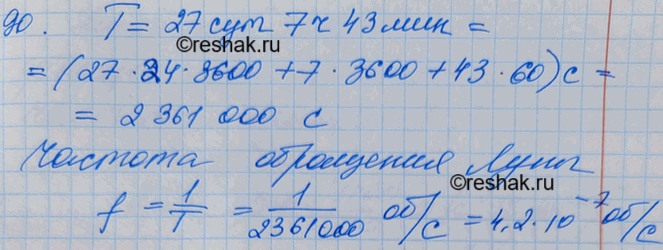 90. T = 27 сут 7 ч 43 мин =
©reshak.ru
= (27 · 24 · 3600 + 7 · 3600 + 43 · 60) с =
= 2 361 000 с
Частота обращения Луны
©reshak.ru
f = 1/T = 1/2361000 об/с = 4,2 · 10⁻⁷ об/с